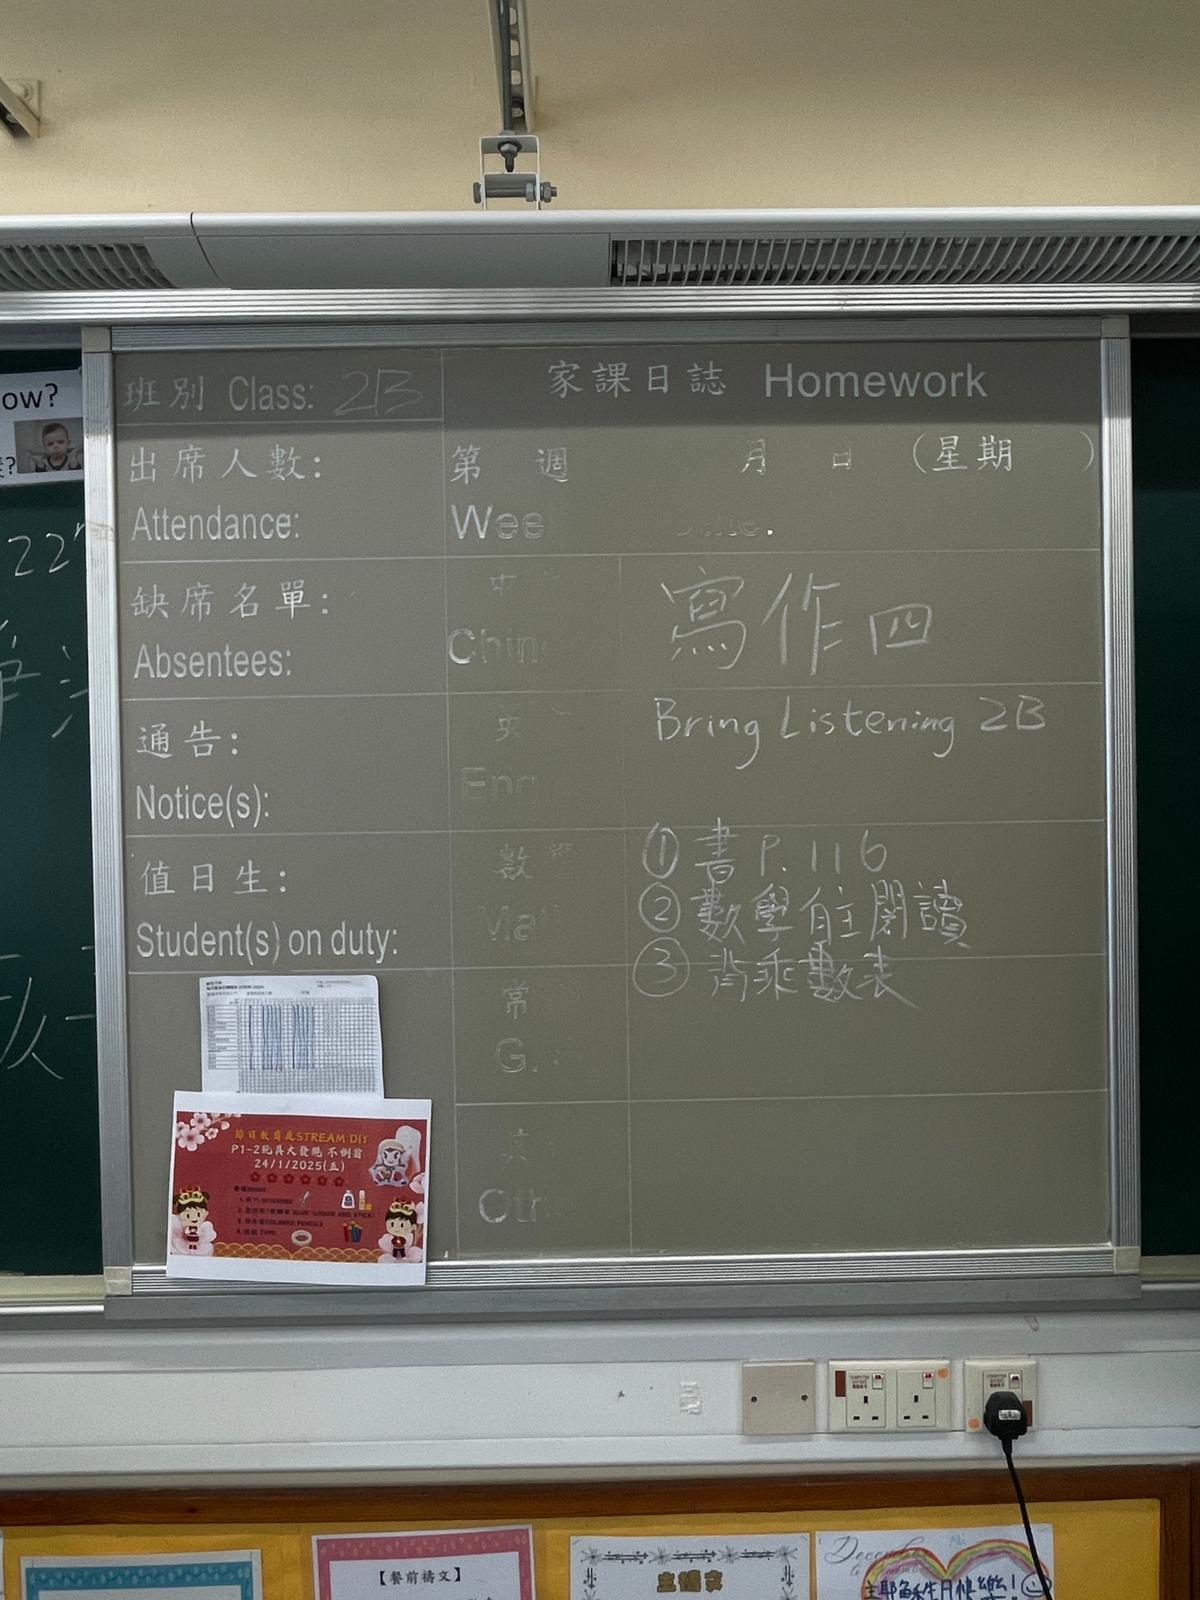 ow?
班別 Class: 2B
家課日誌 Homework
出席人數:
Attendance:
第 週 月 日 (星期 )
Wee
缺席名單:
Absentees:
中
Chin
寫作四
通告:
Notice(s):
英
Eng
Bring Listening 2B
值日生:
Student(s) on duty:
數學
Mat
① 書 P.116
② 數學自主閱讀
③ 背乘數表
常
G.
Oth
節日教育及STREAM DIY
P1-2玩具大發現 不倒翁
24/1/2025(五)
22
【餐前禱文】
主禱文
December
主耶穌生日快樂!